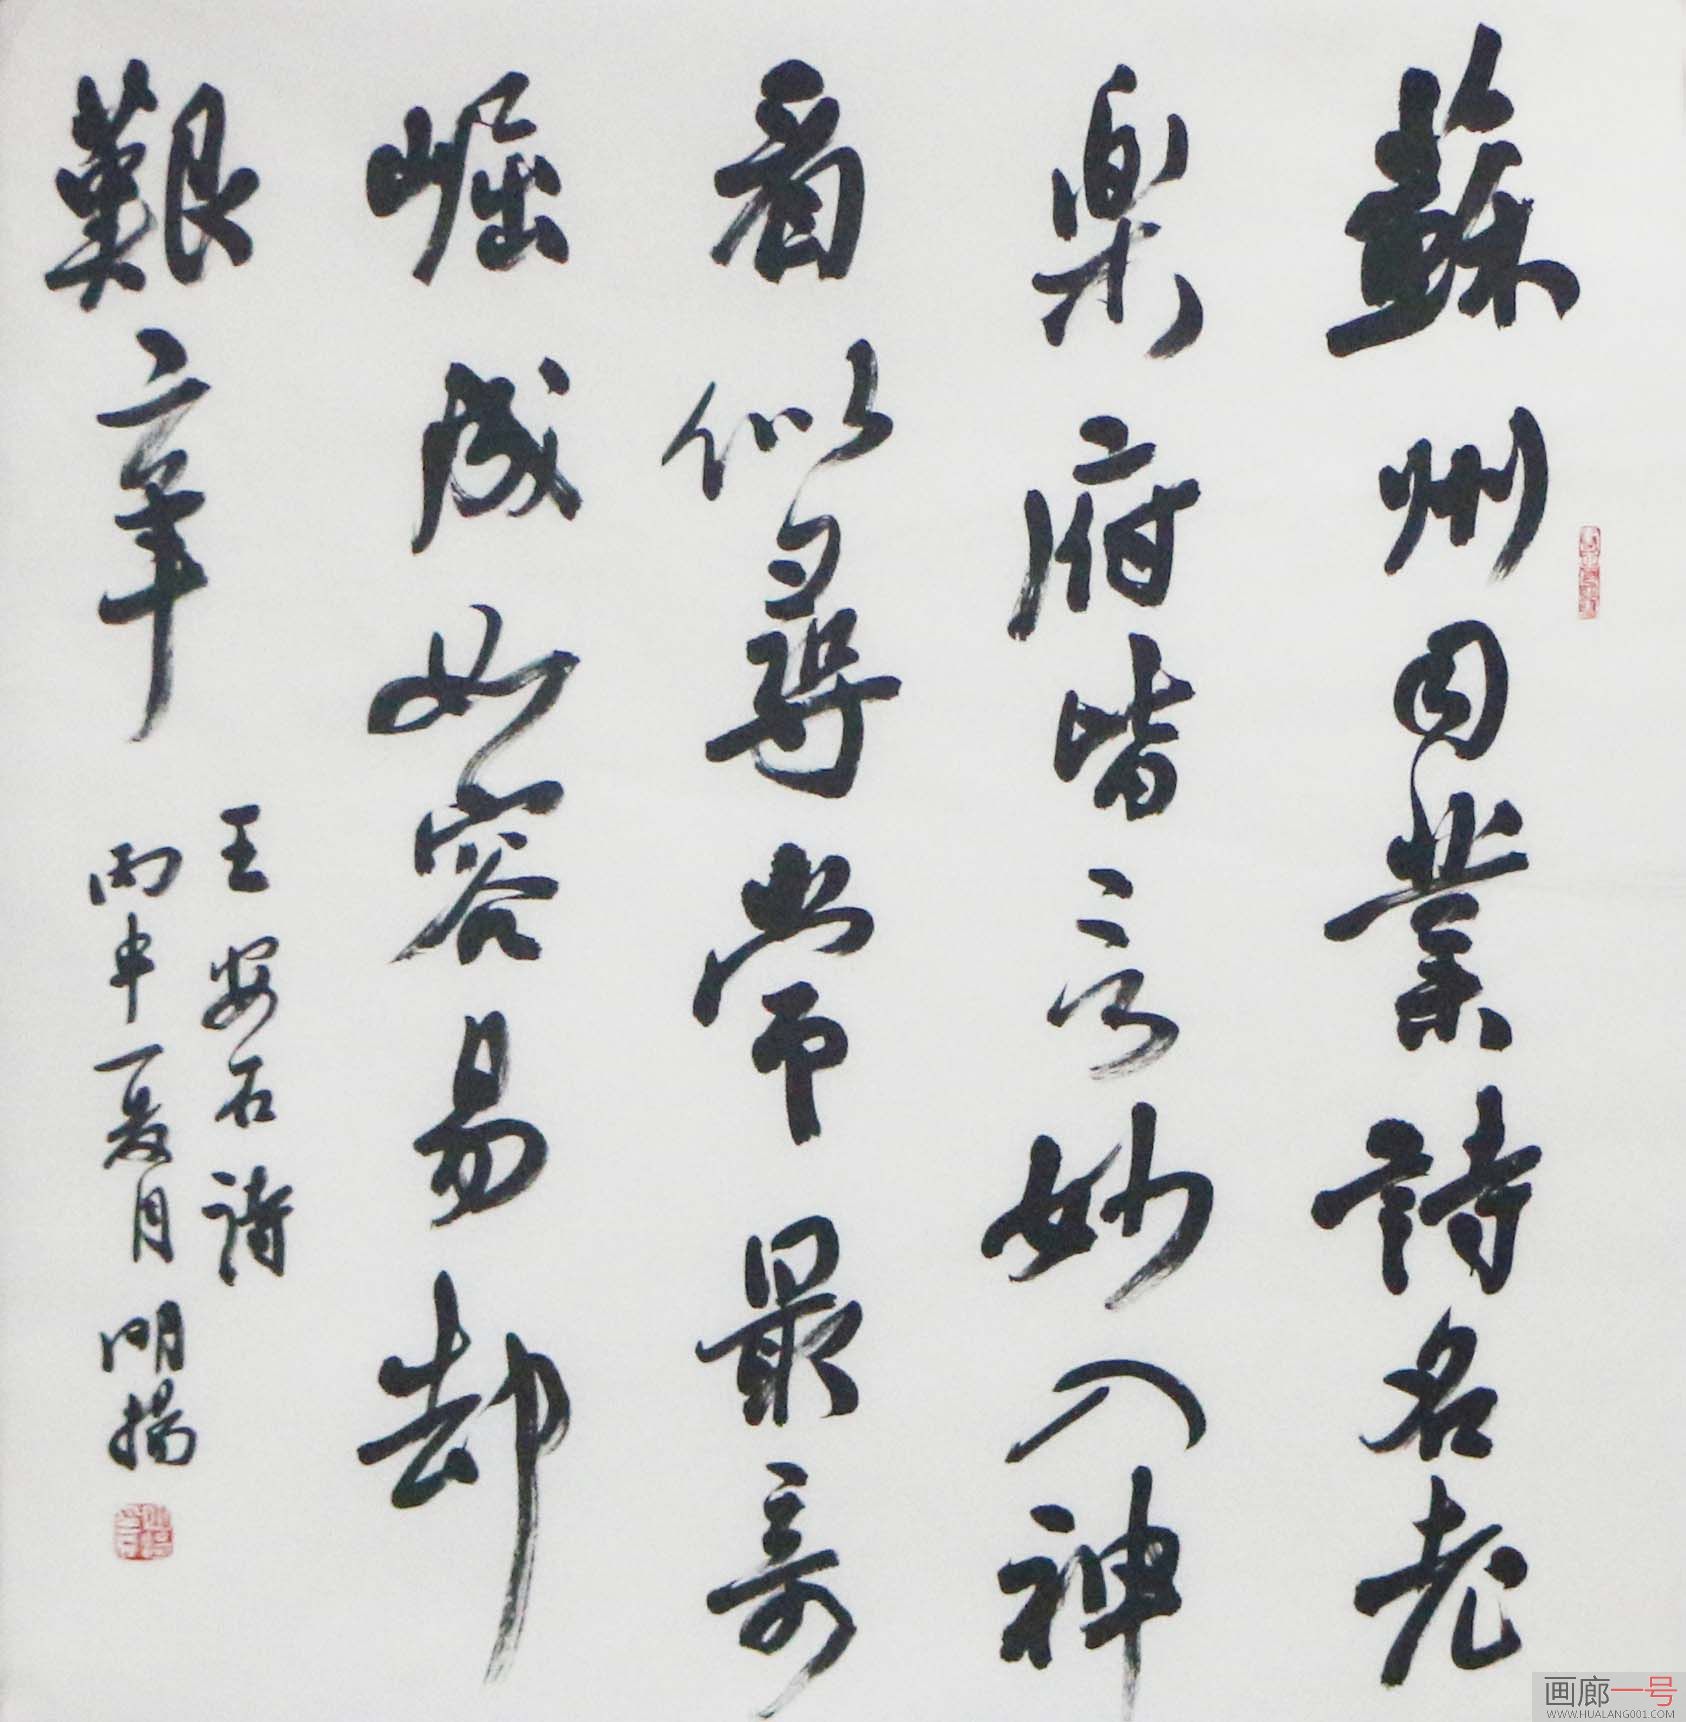 蘇州司業詩名老
樂府皆言妙入神
看似尋常最奇
崛成如容易却
艱辛
王安石詩
丙申夏月明揚
画廊一号
WWW.HUALANG001.COM